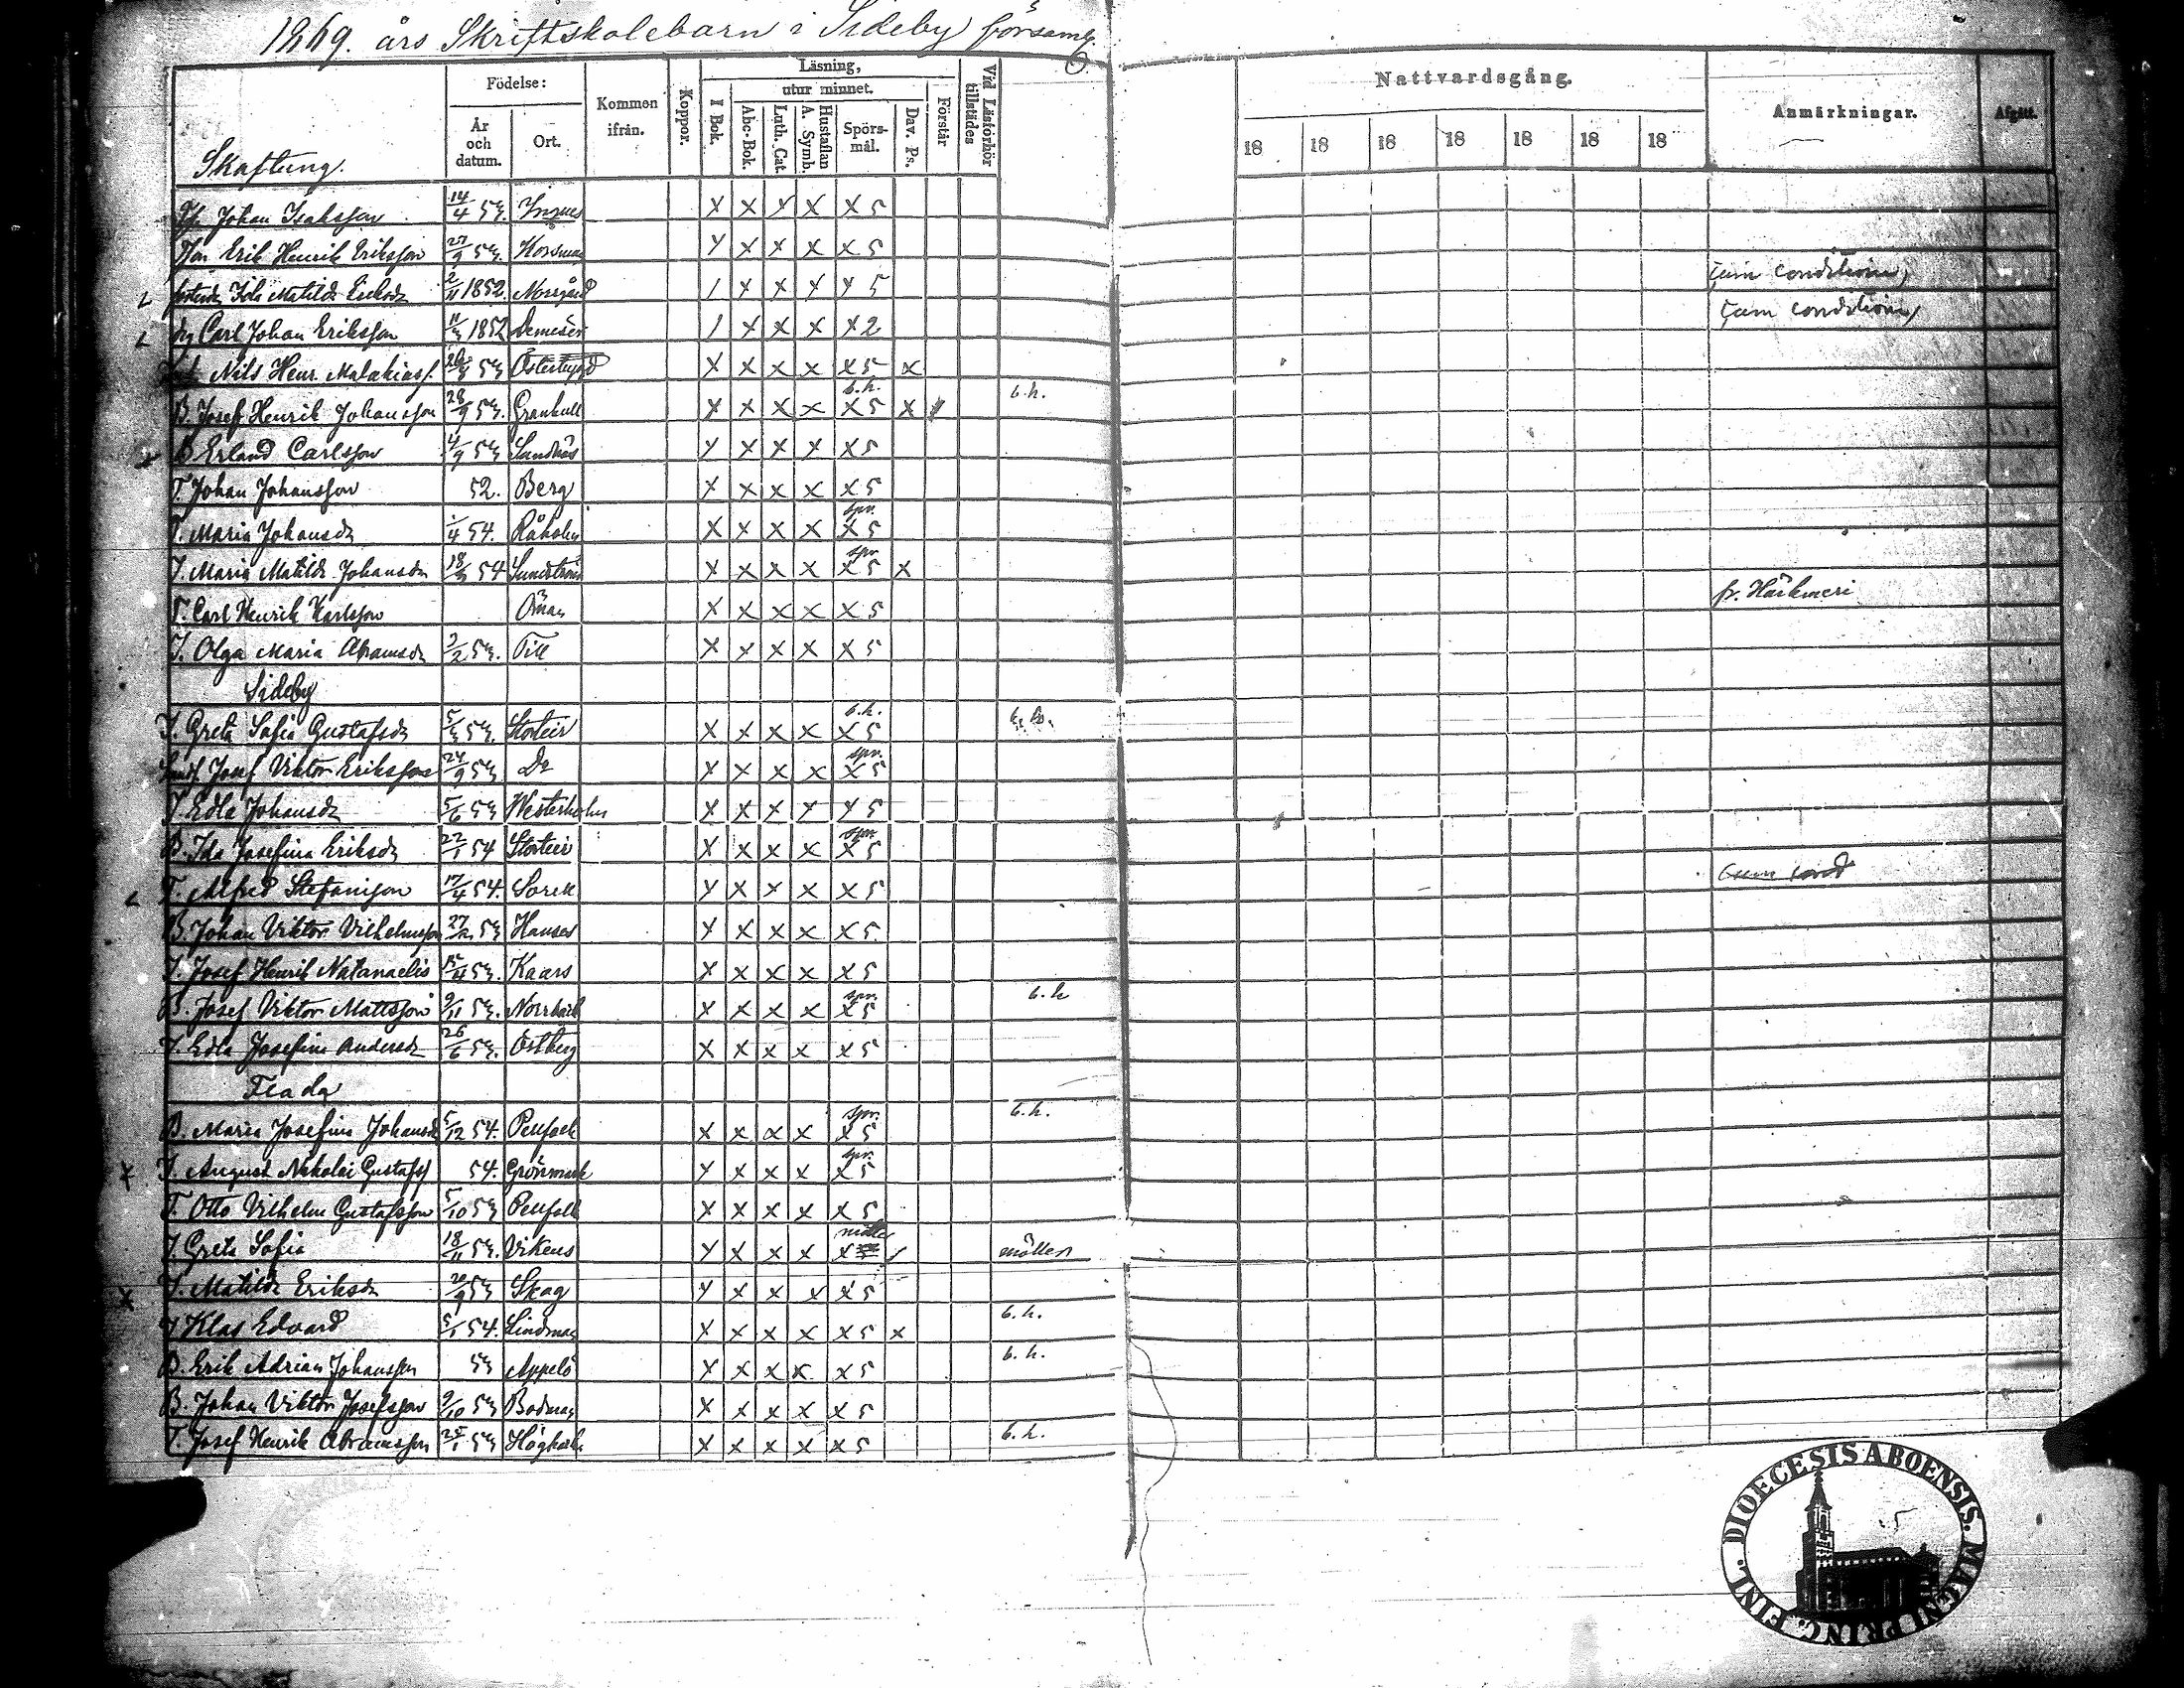 1869. års Skriftskolebarn i Sideby församl.
Födelse:
År och datum.
Ort.
Kommen ifrån.
Koppor.
Läsning,
utur minnet.
I Bok.
Abc-Bok.
Luth. Cat.
Hustaflan A. Symb.
Spörs-mål.
Dav. Ps.
Förstår
Vid Läsförhör tillstädes
Nattvardsgång.
18 18 18 18 18 18 18
Anmärkningar.
Afgått.
Skaftung.
Johan Isaksson 14/4 53. X X X X X 5
Erik Henrik Eriksson 53. X X X X X 5
Ida Matilda Eriksdr 2/11 1852. Norrgård 1 X X X X 5 (cum conditione)
Carl Johan Eriksson 1852 1 X X X X 2 (cum conditione)
Nils Henr. Malakiass. 53 X X X X X 5 X
B. Josef Henrik Johansson 28/9 53. Grankull X X X X X 5 X b.h. b.h.
B. Erland Carlsson 4/9 53 Sandnäs X X X X X 5
T. Johan Johansson 52. Berg X X X X X 5
T. Maria Johansdr /4 54. Råholm X X X X X 5 spr.
J. Maria Matilda Johansdr 54 Sundström X X X X X 5 X spr.
T. Carl Henrik Karlsson Öman X X X X X 5 fr. Härkmeri
J. Olga Maria Abramsdr 2/2 53. Till X X X X X 5
Sideby
J. Greta Sofia Gustafsdr 53. Storteir X X X X X 5 b.h. b.h.
Josef Viktor Eriksson 24/9 53 Do X X X X X 5 spr.
J. Edla Johansdr 5/6 53 Westerholm X X X X X 5
B. Ida Josefina Eriksdr 22/1 54 Storteir X X X X X 5 spr.
T. Alfred Stefansson 17/4 54. X X X X X 5 Cum cond
B. Johan Viktor Vilhelmsson 53 Hanses X X X X X 5
J. Josef Henrik Natanaelis 15/4 53. Kaars X X X X X 5
B. Josef Viktor Mattsson 9/11 53. Norrback X X X X X 5 spr. b.h
J. Edla Josefina Andersdr 26/6 53. Östberg X X X X X 5
Flada
B. Maria Josefina Johansdr 5/12 54. Penfack X X X X X 5 spr. b.h.
J. August Nikolai Gustafss 54. Grönmark X X X X X 5 spr.
T. Otto Vilhelm Gustafsson 5/10 53 X X X X X 5
J. Greta Sofia 18/11 53. Vikens X X X X X möller möller
J. Matilda Eriksdr 20/9 53 Skog X X X X X 5
J Klas Edvard 5/1 54. Lindman X X X X X 5 X b.h.
B. Erik Adrian Johansson 53 Appelö X X X X X 5 b.h.
B. Johan Viktor Josefsson 9/10 53 Bodman X X X X X 5
T. Josef Henrik Abramsson 25/1 53 Högback X X X X X 5 b.h.
DIOECESIS ABOENSIS. MAGNI PRINC. FINL.